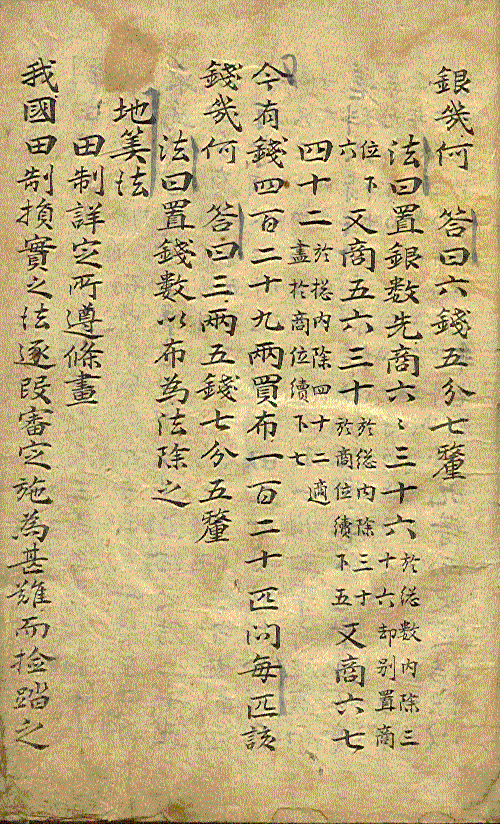 銀幾何　答曰六錢五分七釐
法曰置銀数先商六〻三十六於總数内除三十六却别置商
六位下　又商五六三十於總内除三十於商位續下五　又商六七
四十二於總内除四十二適盡於商位續下七
今有錢四百二十九兩買布一百二十匹问每匹該
錢幾何　答曰三兩五錢七分五釐
法曰置錢數以布為法除之
地筭法
田制詳定所遵條畫
我國田制損實之法逐段審定施為甚難而捡踏之